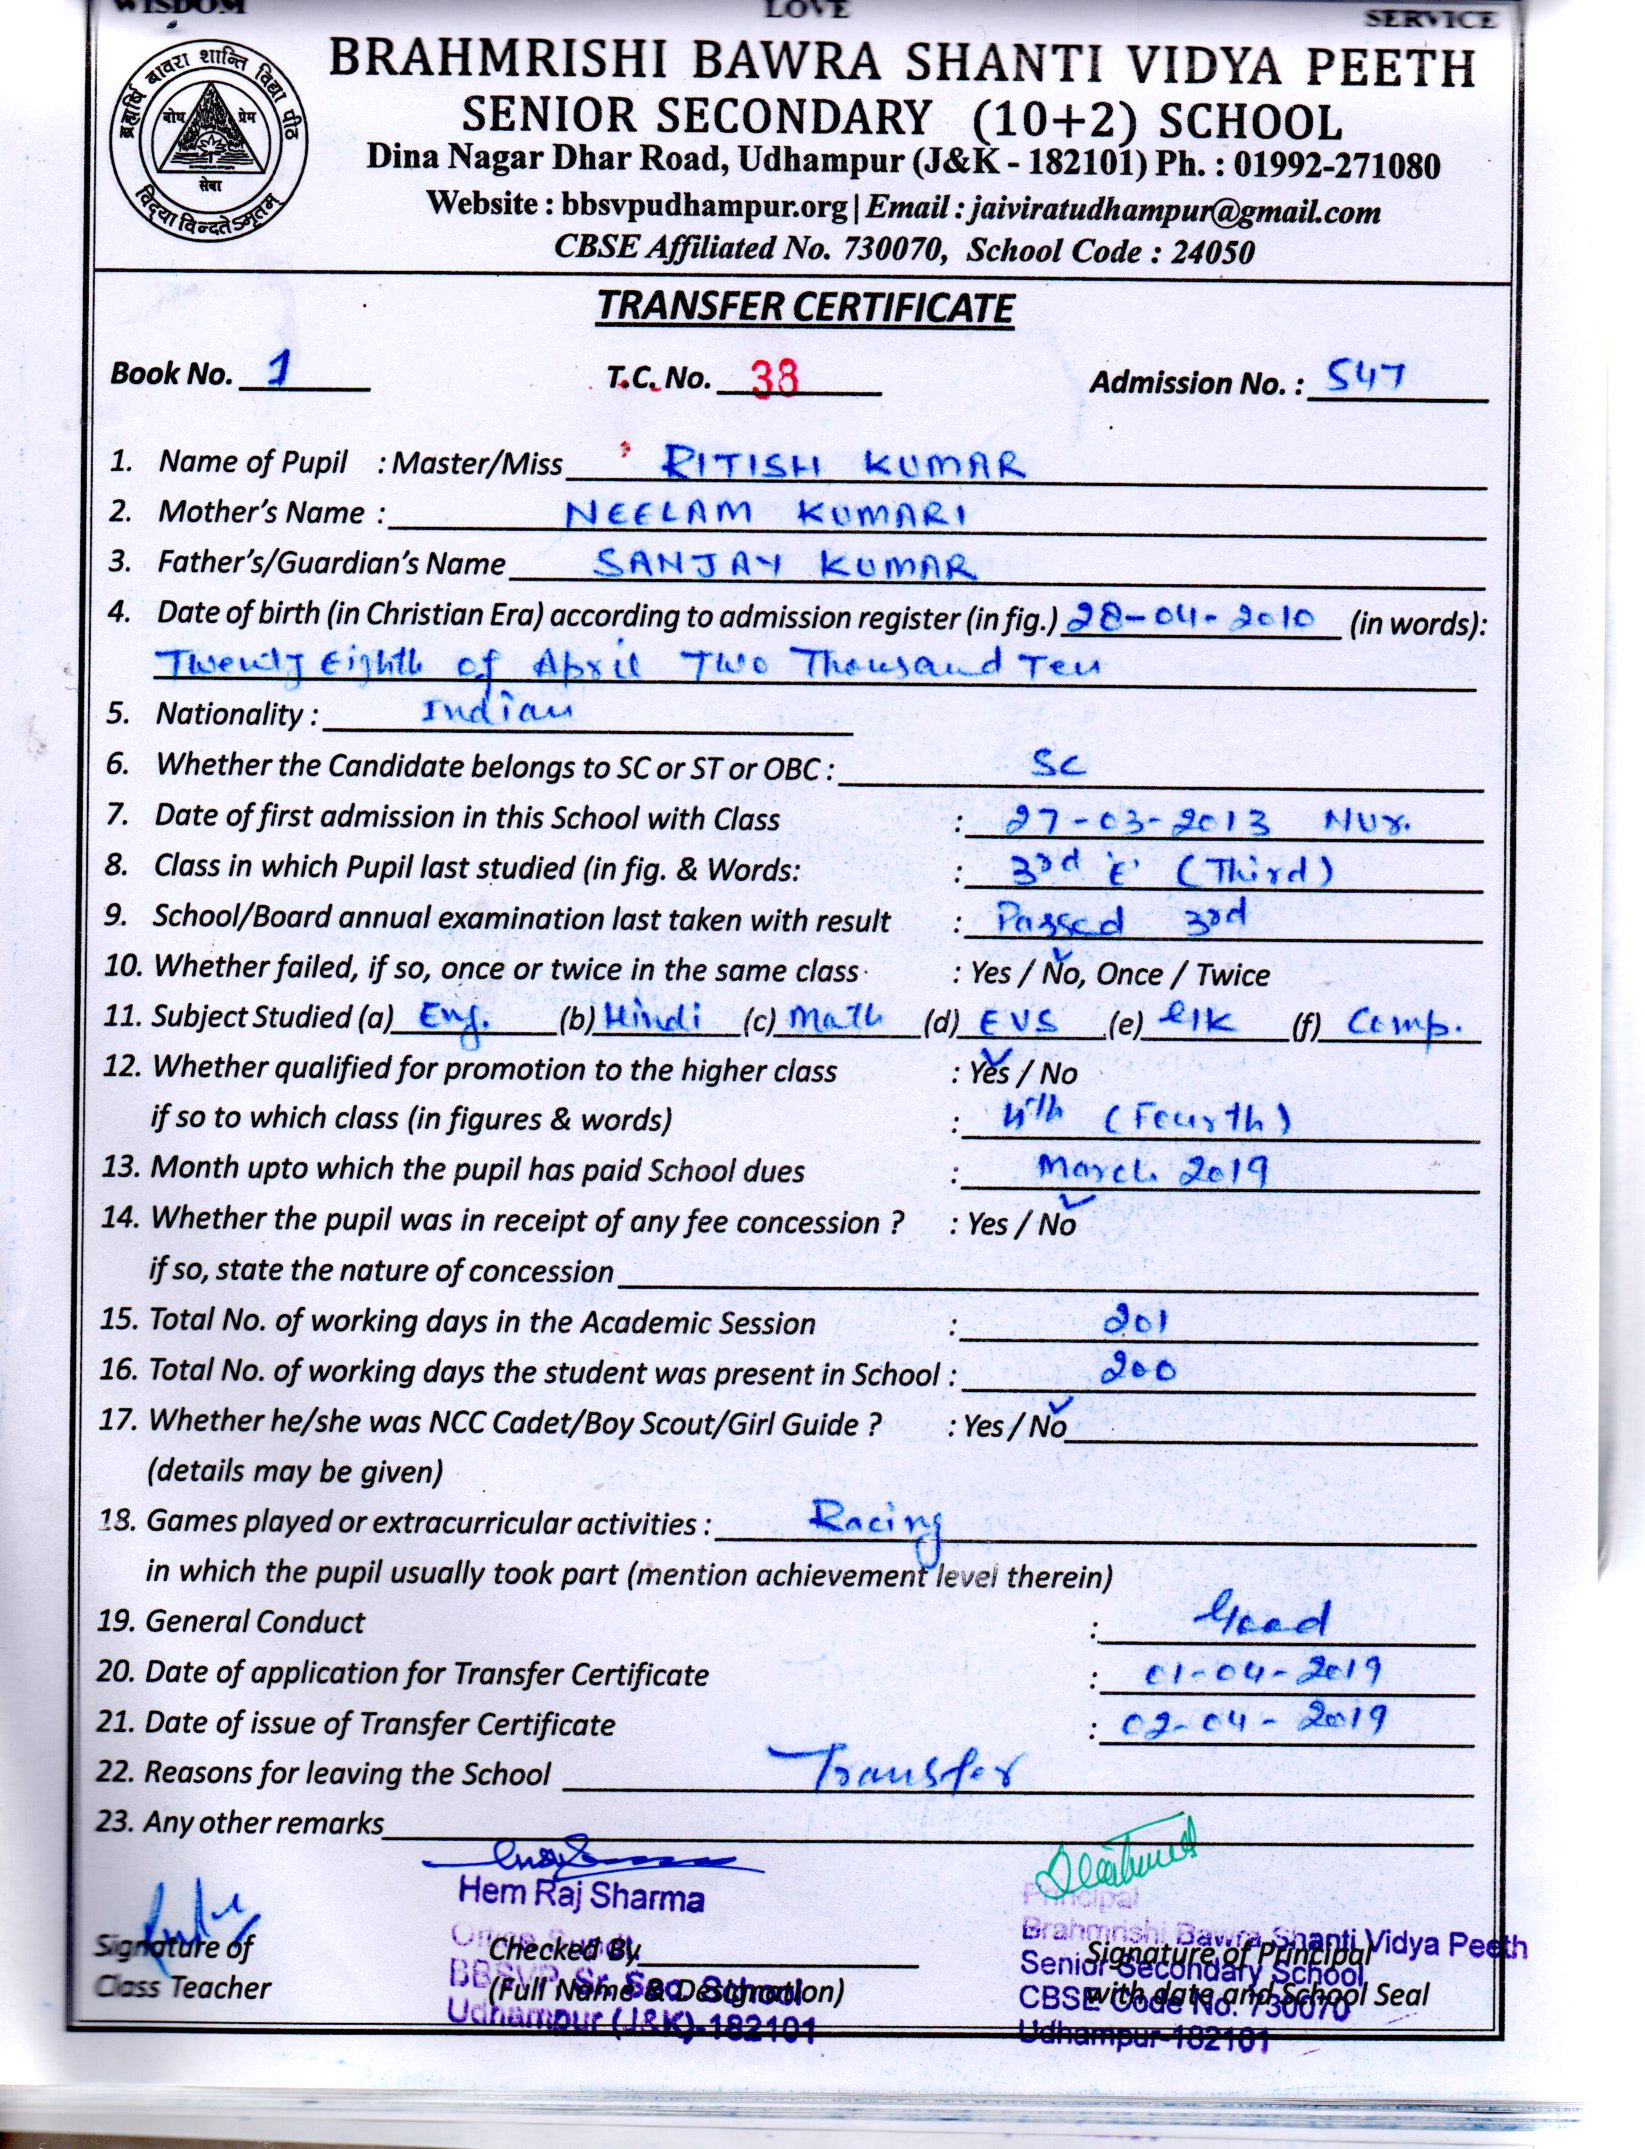 WISDOM LOVE SERVICE
ब्रह्मर्षि बावरा शान्ति विद्या पीठ
बोध प्रेम
सेवा
विद्यया विन्दतेऽमृतम्
BRAHMRISHI BAWRA SHANTI VIDYA PEETH
SENIOR SECONDARY (10+2) SCHOOL
Dina Nagar Dhar Road, Udhampur (J&K - 182101) Ph. : 01992-271080
Website : bbsvpudhampur.org | Email : jaiviratudhampur@gmail.com
CBSE Affiliated No. 730070, School Code : 24050
TRANSFER CERTIFICATE
Book No. 1 T.C. No. 38 Admission No. : 547
1. Name of Pupil : Master/Miss RITISH KUMAR
2. Mother's Name : NEELAM KUMARI
3. Father's/Guardian's Name SANJAY KUMAR
4. Date of birth (in Christian Era) according to admission register (in fig.) 28-04-2010 (in words):
Twenty Eighth of April Two Thousand Ten
5. Nationality : Indian
6. Whether the Candidate belongs to SC or ST or OBC : SC
7. Date of first admission in this School with Class : 27-03-2013 Nur.
8. Class in which Pupil last studied (in fig. & Words: : 3rd 'E' (Third)
9. School/Board annual examination last taken with result : Passed 3rd
10. Whether failed, if so, once or twice in the same class : Yes / No, Once / Twice
11. Subject Studied (a) Eng. (b) Hindi (c) Math (d) EVS (e) GK (f) Comp.
12. Whether qualified for promotion to the higher class : Yes / No
if so to which class (in figures & words) : 4th (Fourth)
13. Month upto which the pupil has paid School dues : March 2019
14. Whether the pupil was in receipt of any fee concession ? : Yes / No
if so, state the nature of concession
15. Total No. of working days in the Academic Session : 201
16. Total No. of working days the student was present in School : 200
17. Whether he/she was NCC Cadet/Boy Scout/Girl Guide ? : Yes / No
(details may be given)
18. Games played or extracurricular activities : Racing
in which the pupil usually took part (mention achievement level therein)
19. General Conduct : Good
20. Date of application for Transfer Certificate : 01-04-2019
21. Date of issue of Transfer Certificate : 02-04-2019
22. Reasons for leaving the School Transfer
23. Any other remarks
Hem Raj Sharma
Principal
Brahmrishi Bawra Shanti Vidya Peeth
Signature of Checked By Signature of Principal
Senior Secondary School
Class Teacher (Full Name & Designation) with date and School Seal
BBSVP Sr. Sec. School CBSE Code No. 730070
Udhampur (J&K)-182101 Udhampur-182101